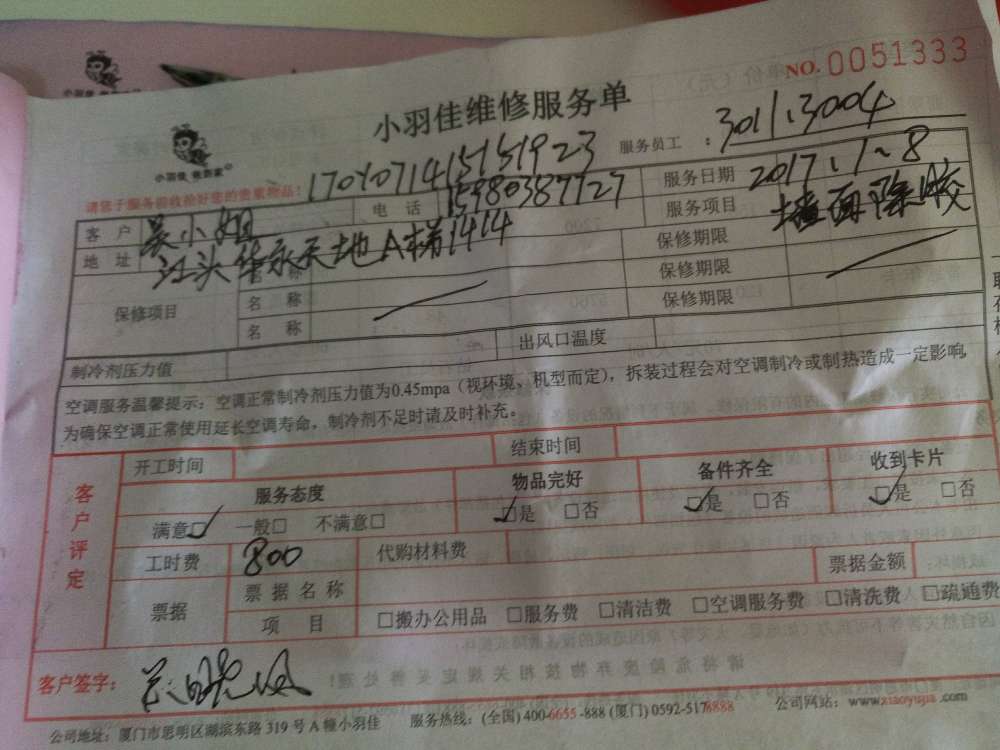 NO. 0051333
小羽佳维修服务单
小羽佳 做到家
服务员工：3011、3004
请您于服务前收拾好您的贵重物品！
17010714151519 23
客户 吴小姐 电话 15980387727 服务日期 2017.1-8
地址 江头华永天地A梯1414 服务项目 墙面除胶
保修项目 名称 保修期限
名称 保修期限
名称 保修期限
制冷剂压力值 出风口温度
空调服务温馨提示：空调正常制冷剂压力值为0.45mpa（视环境、机型而定），拆装过程会对空调制冷或制热造成一定影响，
为确保空调正常使用延长空调寿命，制冷剂不足时请及时补充。
客户评定
开工时间 结束时间
服务态度 物品完好 备件齐全 收到卡片
满意☑ 一般□ 不满意□ ☑是 □否 ☑是 □否 ☑是 □否
工时费 800 代购材料费
票据 票据名称 票据金额
项目 □搬办公用品 □服务费 □清洁费 □空调服务费 □清洗费 □疏通费
客户签字：
公司地址：厦门市思明区湖滨东路319号A幢小羽佳 服务热线：(全国) 400-6655-888 (厦门) 0592-5178888 公司网站：www.xiaoyujia.com